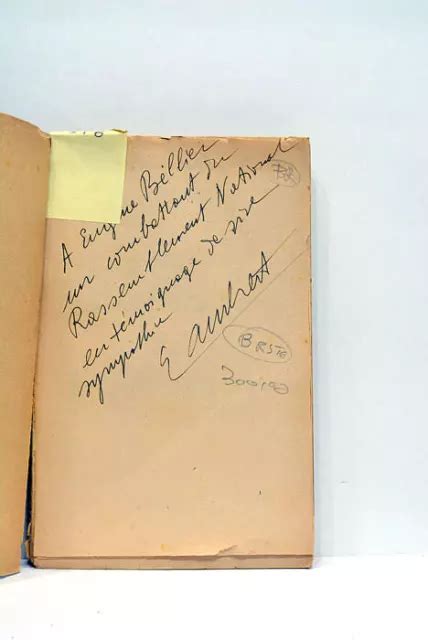 A Eugène Bellier
un combattant du
Rassemblement National
en témoignage de vive
sympathie
BRSTG
300,00